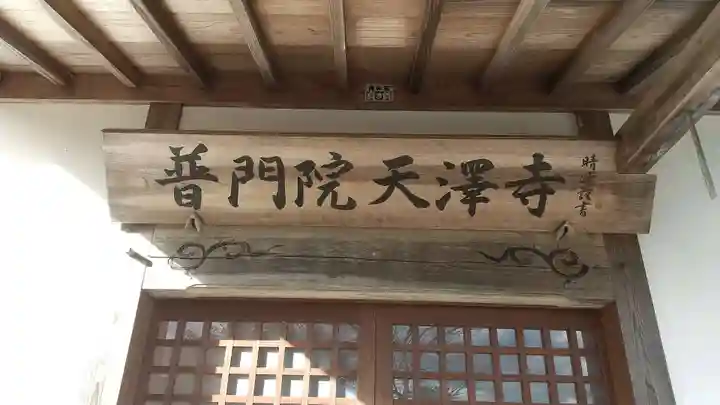 普門院天澤寺